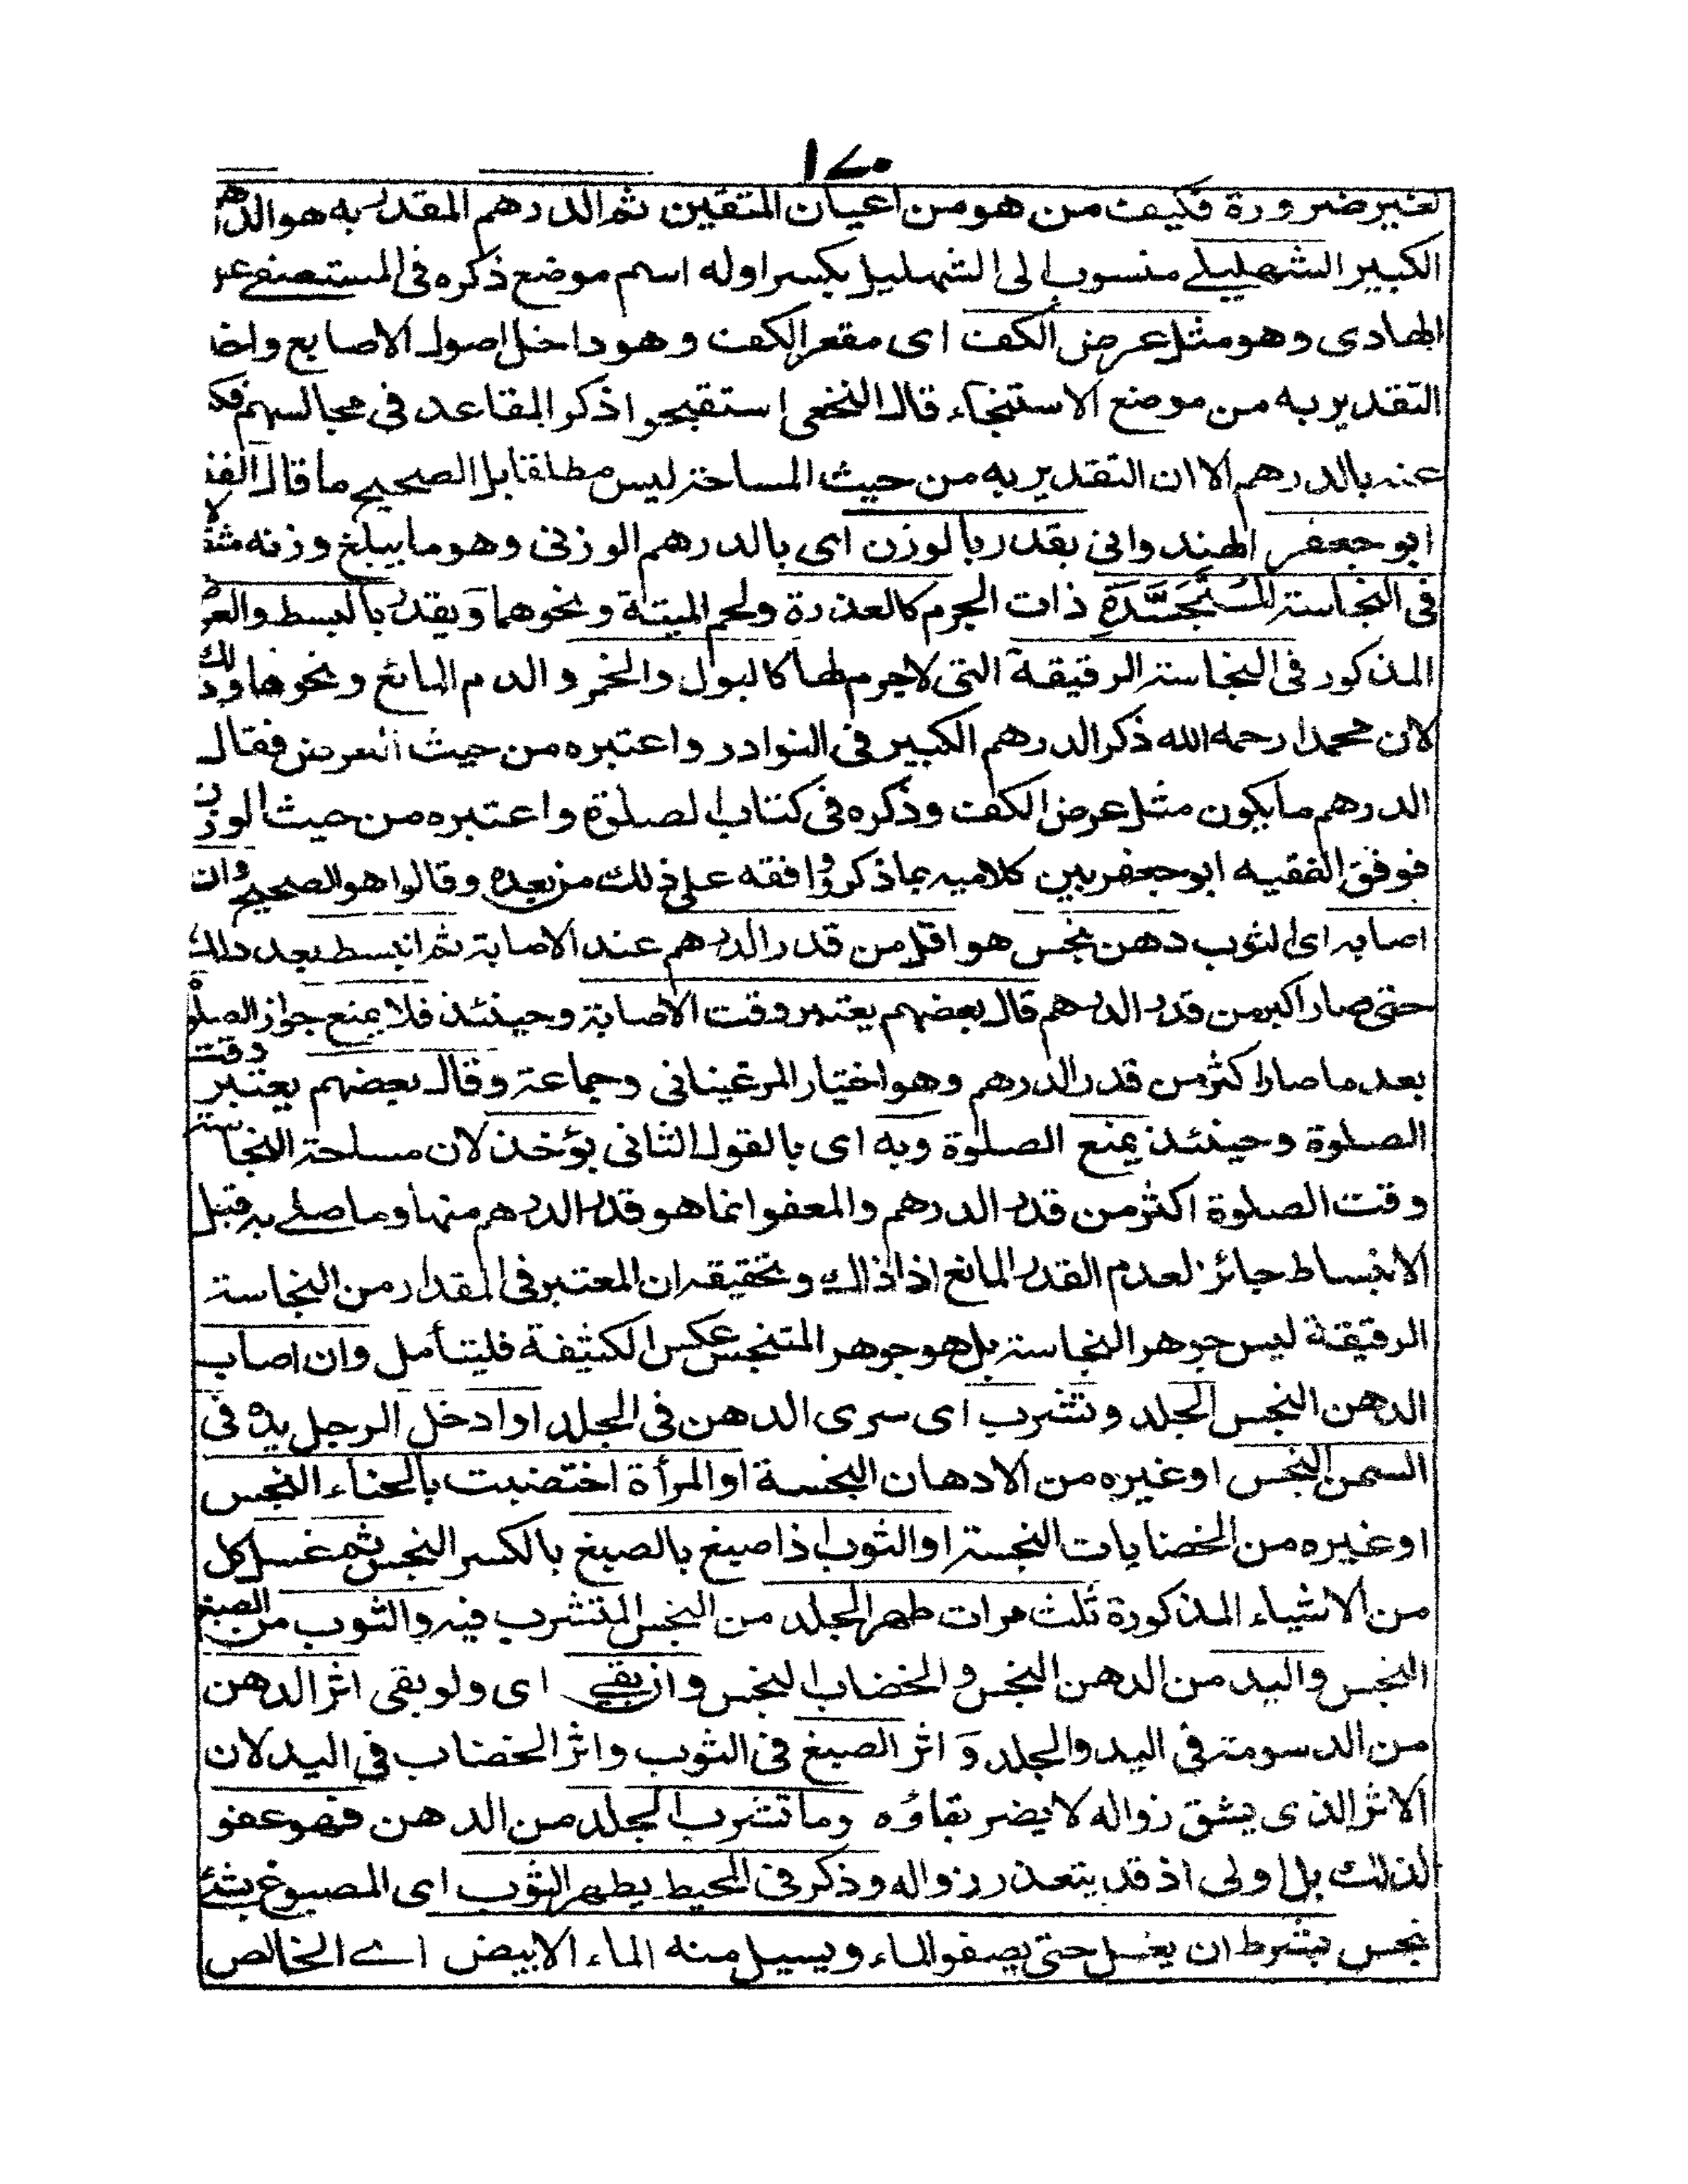 ١٧٠
لغير ضرورة فكيف من هو من اعيان المتقين ثم الدرهم المقدر به هو الدرهم
الكبير الشهليلے منسوب الى الشهليل بكسر اوله اسم موضع ذكره فى المستصفے عن
الهادى وهو مثل عرض الكف اى مقعر الكف وهو داخل اصول الاصابع واخذ
التقدير به من موضع الاستنجاء قال النخعى استقبحوا ذكر المقاعد فى مجالسهم فكنوا
عنه بالدرهم الا ان التقدير به من حيث المساحة ليس مطلقا بل الصحيح ما قال الفقيه
ابو جعفر الهندوانى بقدر بالوزن اى بالدرهم الوزنى وهو ما يبلغ وزنه مثقالا
فى النجاسة المستَجَسَّدَةِ ذات الجرم كالعذرة ولحم الميتة ونحوهما ويقدر بالبسط والعرض
المذكور فى النجاسة الرقيقة التى لا جرم لها كالبول والخمر والدم المائع ونحوها وذلك
لان محمدا رحمه الله ذكر الدرهم الكبير فى النوادر واعتبره من حيث العرض فقال
الدرهم ما يكون مثل عرض الكف وذكره فى كتاب الصلوة واعتبره من حيث الوزن
فوفق الفقيه ابو جعفر بين كلاميه بما ذكر ووافقه على ذلك من بعده وقالوا هو الصحيح وان
اصابه اى الثوب دهن نجس هو اقل من قدر الدرهم عند الاصابة ثم انبسط بعد ذلك
حتى صار اكبر من قدر الدرهم قال بعضهم يعتبر وقت الاصابة وحينئذ فلا يمنع جواز الصلوة
بعد ما صار اكثر من قدر الدرهم وهو اختيار المرغينانى وجماعة وقال بعضهم يعتبر وقت
الصلوة وحينئذ يمنع الصلوة وبه اى بالقول الثانى يؤخذ لان مساحة النجاسة
وقت الصلوة اكثر من قدر الدرهم والمعفو انما هو قدر الدرهم منها وما صلے به قبل
الانبساط جائز لعدم القدر المانع اذا ذاك وتحقيقه ان المعتبر فى المقدار من النجاسة
الرقيقة ليس جوهر النجاسة بل هو جوهر المتنجس عكس الكثيفة فليتأمل وان اصاب
الدهن النجس الجلد وتشرب اى سرى الدهن فى الجلد او ادخل الرجل يده فى
السمن النجس او غيره من الادهان النجسة او المرأة اختضبت بالحناء النجس
او غيره من الخضابات النجسة او الثوب اذا صبغ بالصبغ بالكسر النجس ثم غسل كل
من الاشياء المذكورة ثلث مرات طهر الجلد من النجس المتشرب فيه والثوب من الصبغ
النجس واليد من الدهن النجس والخضاب النجس وان بقے اى ولو بقى اثر الدهن
من الدسومة فى اليد والجلد وَ اثر الصبغ فى الثوب واثر الخضاب فى اليد لان
الاثر الذى يشق زواله لا يضر بقاؤه وما تشرب الجلد من الدهن فهو عفو
لذلك بل اولى اذ قد يتعذر زواله وذكر فى المحيط يطهر الثوب اى المصبوغ بشئ
نجس بشرط ان يغسل حتى يصفو الماء ويسيل منه الماء الابيض اے الخالص